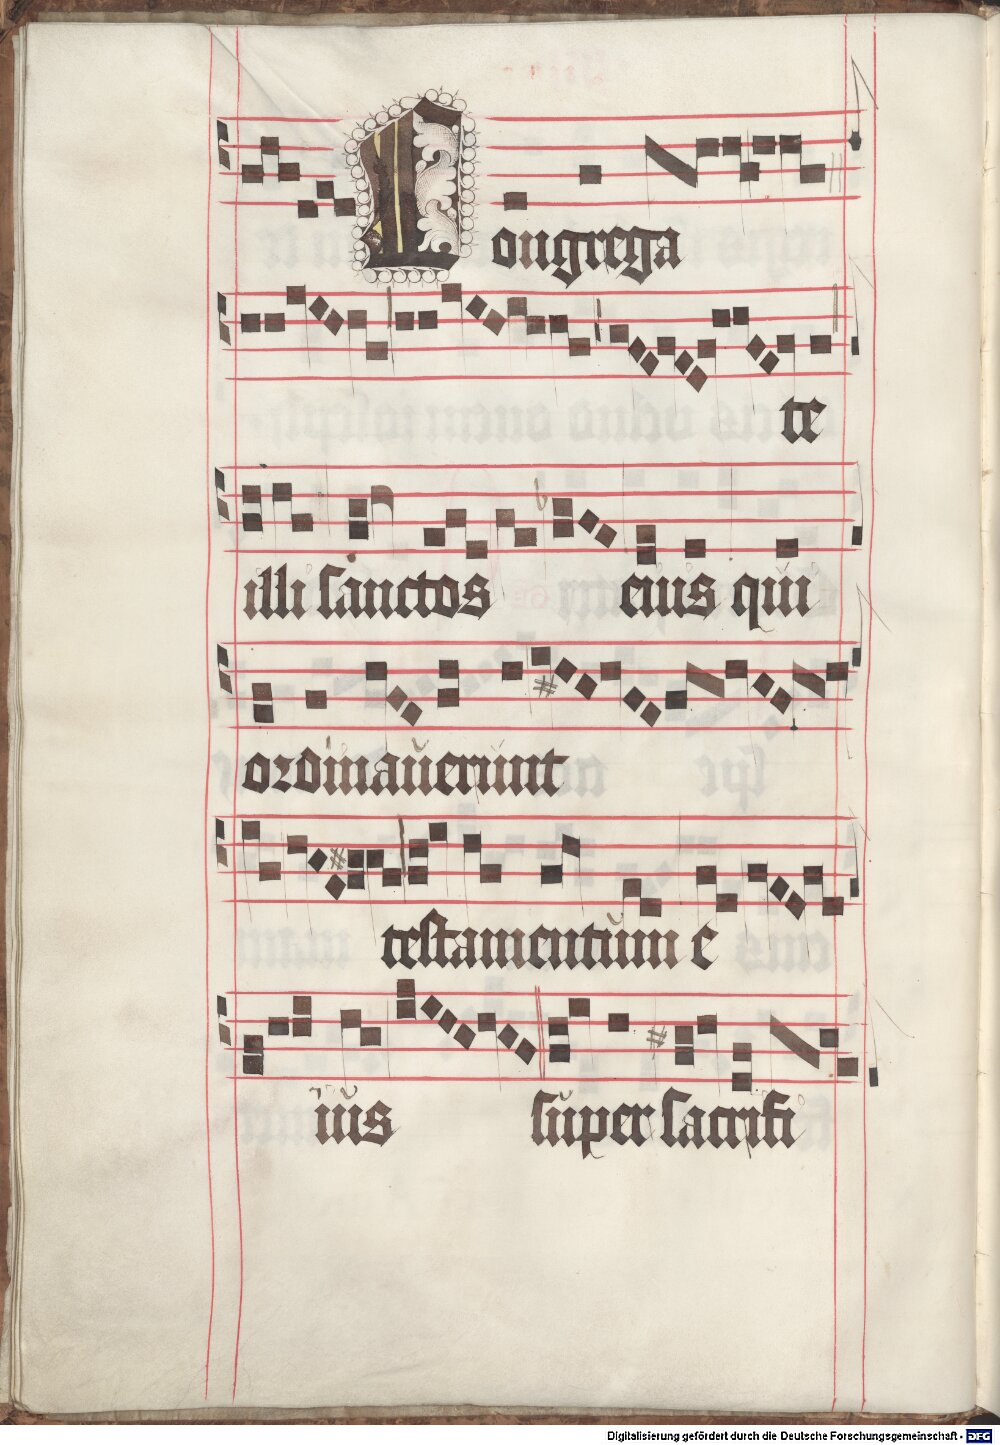 Congrega
te
illi sanctos eius qui
ordinauerunt
testamentum e
ius super sacrifi
Digitalisierung gefördert durch die Deutsche Forschungsgemeinschaft - DFG